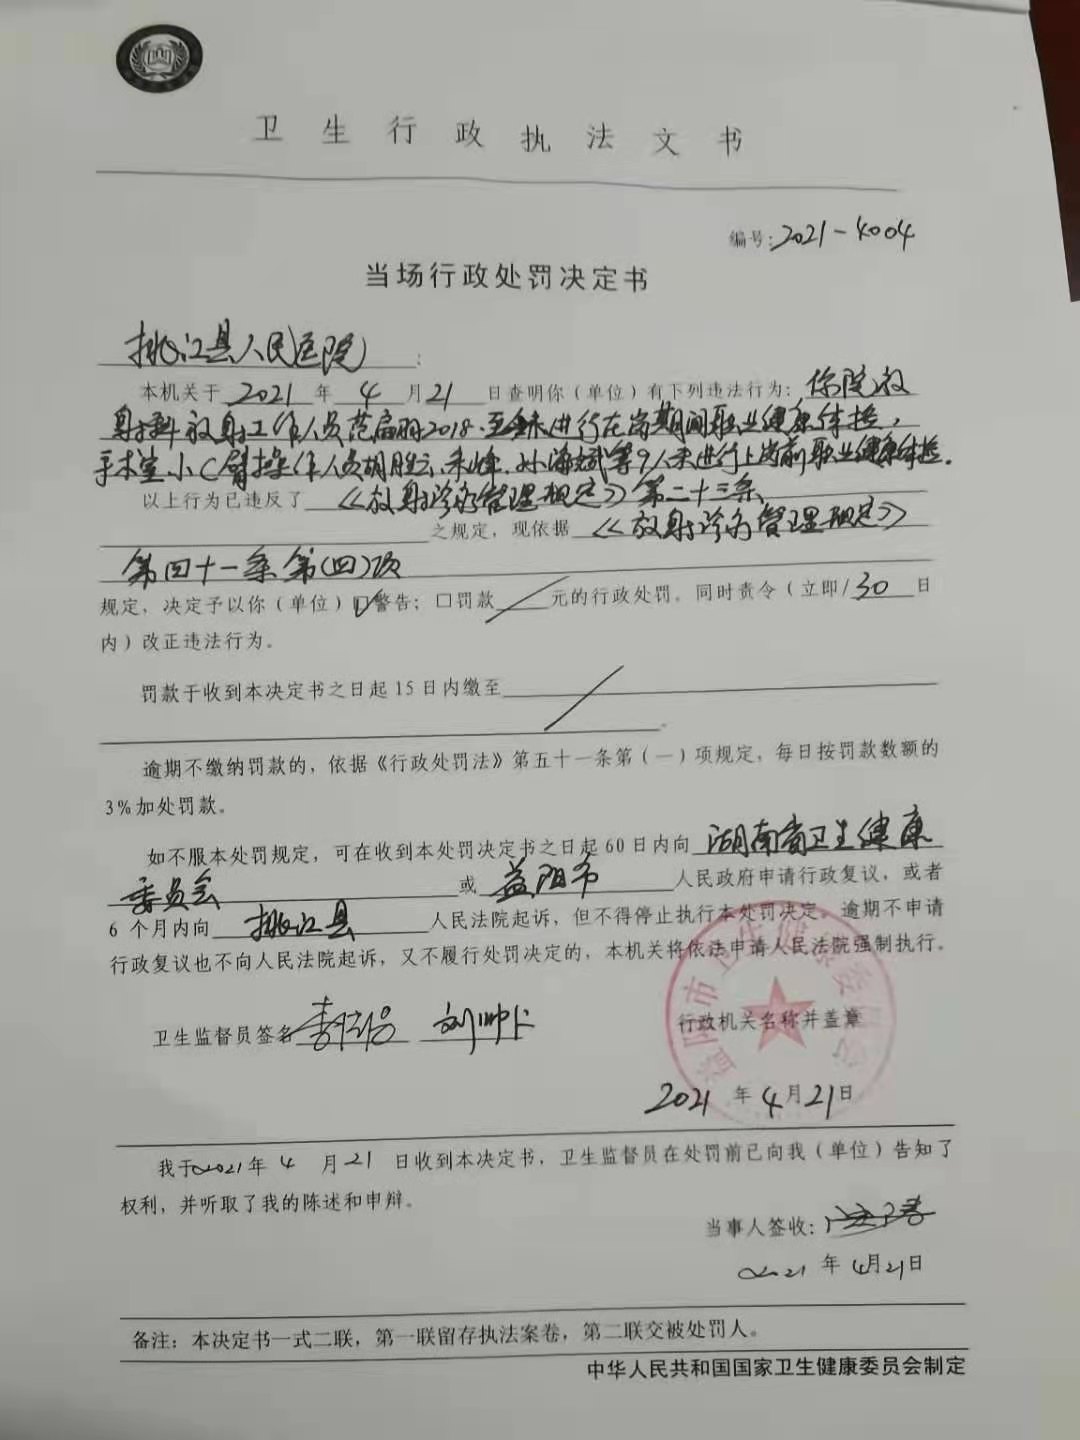 卫生行政执法文书
编号:2021-4004
当场行政处罚决定书
桃江县人民医院:
本机关于2021年4月21日查明你(单位)有下列违法行为:你院放
射科放射工作人员范扇羽2018.至今未进行在岗期间职业健康体检,
手术室小C臂操作人员胡胜云、朱峰、孙海斌等9人未进行上岗前职业健康体检.
以上行为已违反了《放射诊疗管理规定》第二十三条
之规定,现依据《放射诊疗管理规定》
第四十一条第(四)项
规定,决定予以你(单位)☑警告;□罚款/元的行政处罚。同时责令(立即/30日
内)改正违法行为。
罚款于收到本决定书之日起15日内缴至/
。
逾期不缴纳罚款的,依据《行政处罚法》第五十一条第(一)项规定,每日按罚款数额的
3%加处罚款。
如不服本处罚规定,可在收到本处罚决定书之日起60日内向湖南省卫生健康
委员会或益阳市人民政府申请行政复议,或者
6个月内向桃江县人民法院起诉,但不得停止执行本处罚决定。逾期不申请
行政复议也不向人民法院起诉,又不履行处罚决定的,本机关将依法申请人民法院强制执行。
益阳市卫生健康委员会
卫生监督员签名 刘帅
行政机关名称并盖章
2021年4月21日
我于2021年4月21日收到本决定书,卫生监督员在处罚前已向我(单位)告知了
权利,并听取了我的陈述和申辩。
当事人签收:
2021年4月21日
备注:本决定书一式二联,第一联留存执法案卷,第二联交被处罚人。
中华人民共和国国家卫生健康委员会制定